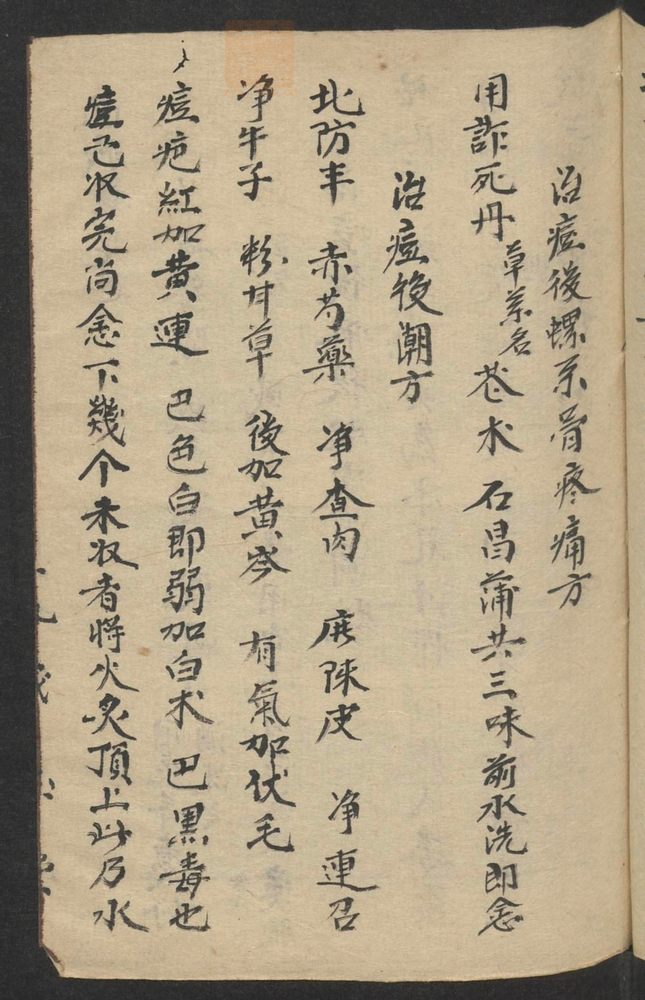 治痘後螺系骨疼痛方
用詐死丹草藥名苍术 石昌蒲共三味前水洗即愈
治痘後潮方
北防丰 赤芍藥 净查肉 庶陳皮 净連召
净牛子 粉甘草 後加黄岑 有氣加伏毛
痘疤紅加黄連 巴色白即弱加白术 巴黑毒也
痘已收完尚念下幾个未收者將火炙頂上此乃水